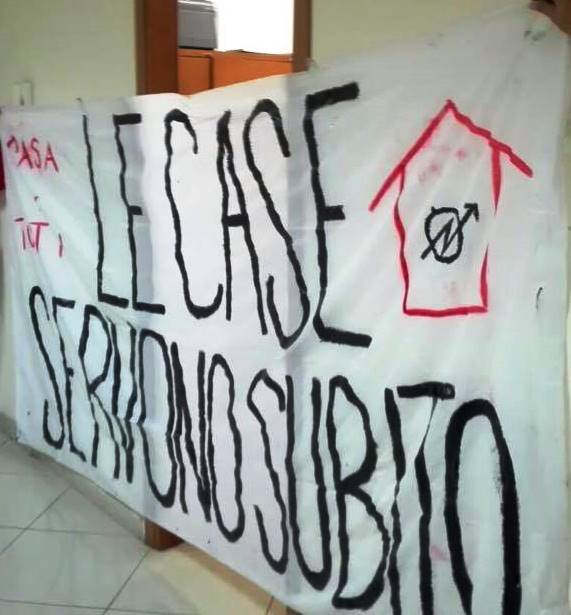 LE CASE
SERVONO SUBITO
CASA
TUTTI